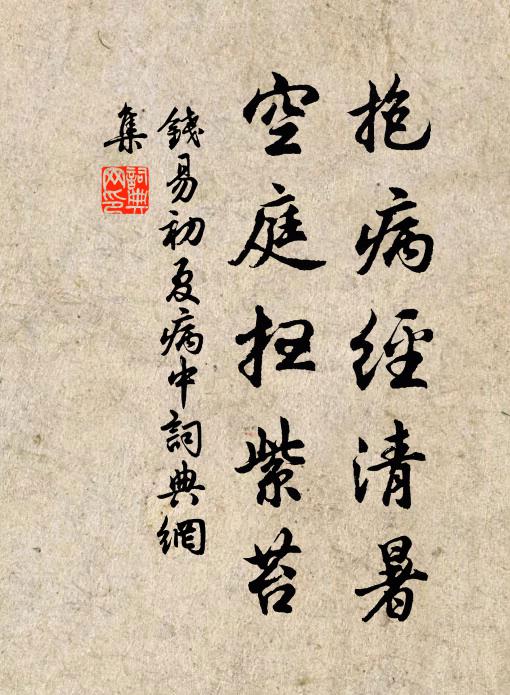 抱病經清暑
空庭扫紫苔
錢易初夏病中詞典網
集
詞典
网印